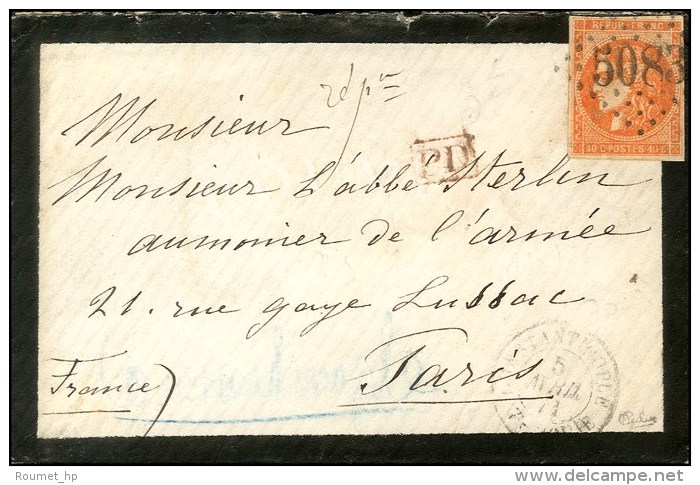 REPUB. FRANC.
5083
40 C. POSTES 40 C.
rép
Monsieur
PD
Monsieur L'abbé Sterlin
aumonier de l'armée
21. rue gaye Lussac
Paris
France
5
AVRIL
71
Roumet_hp
delcampe.net